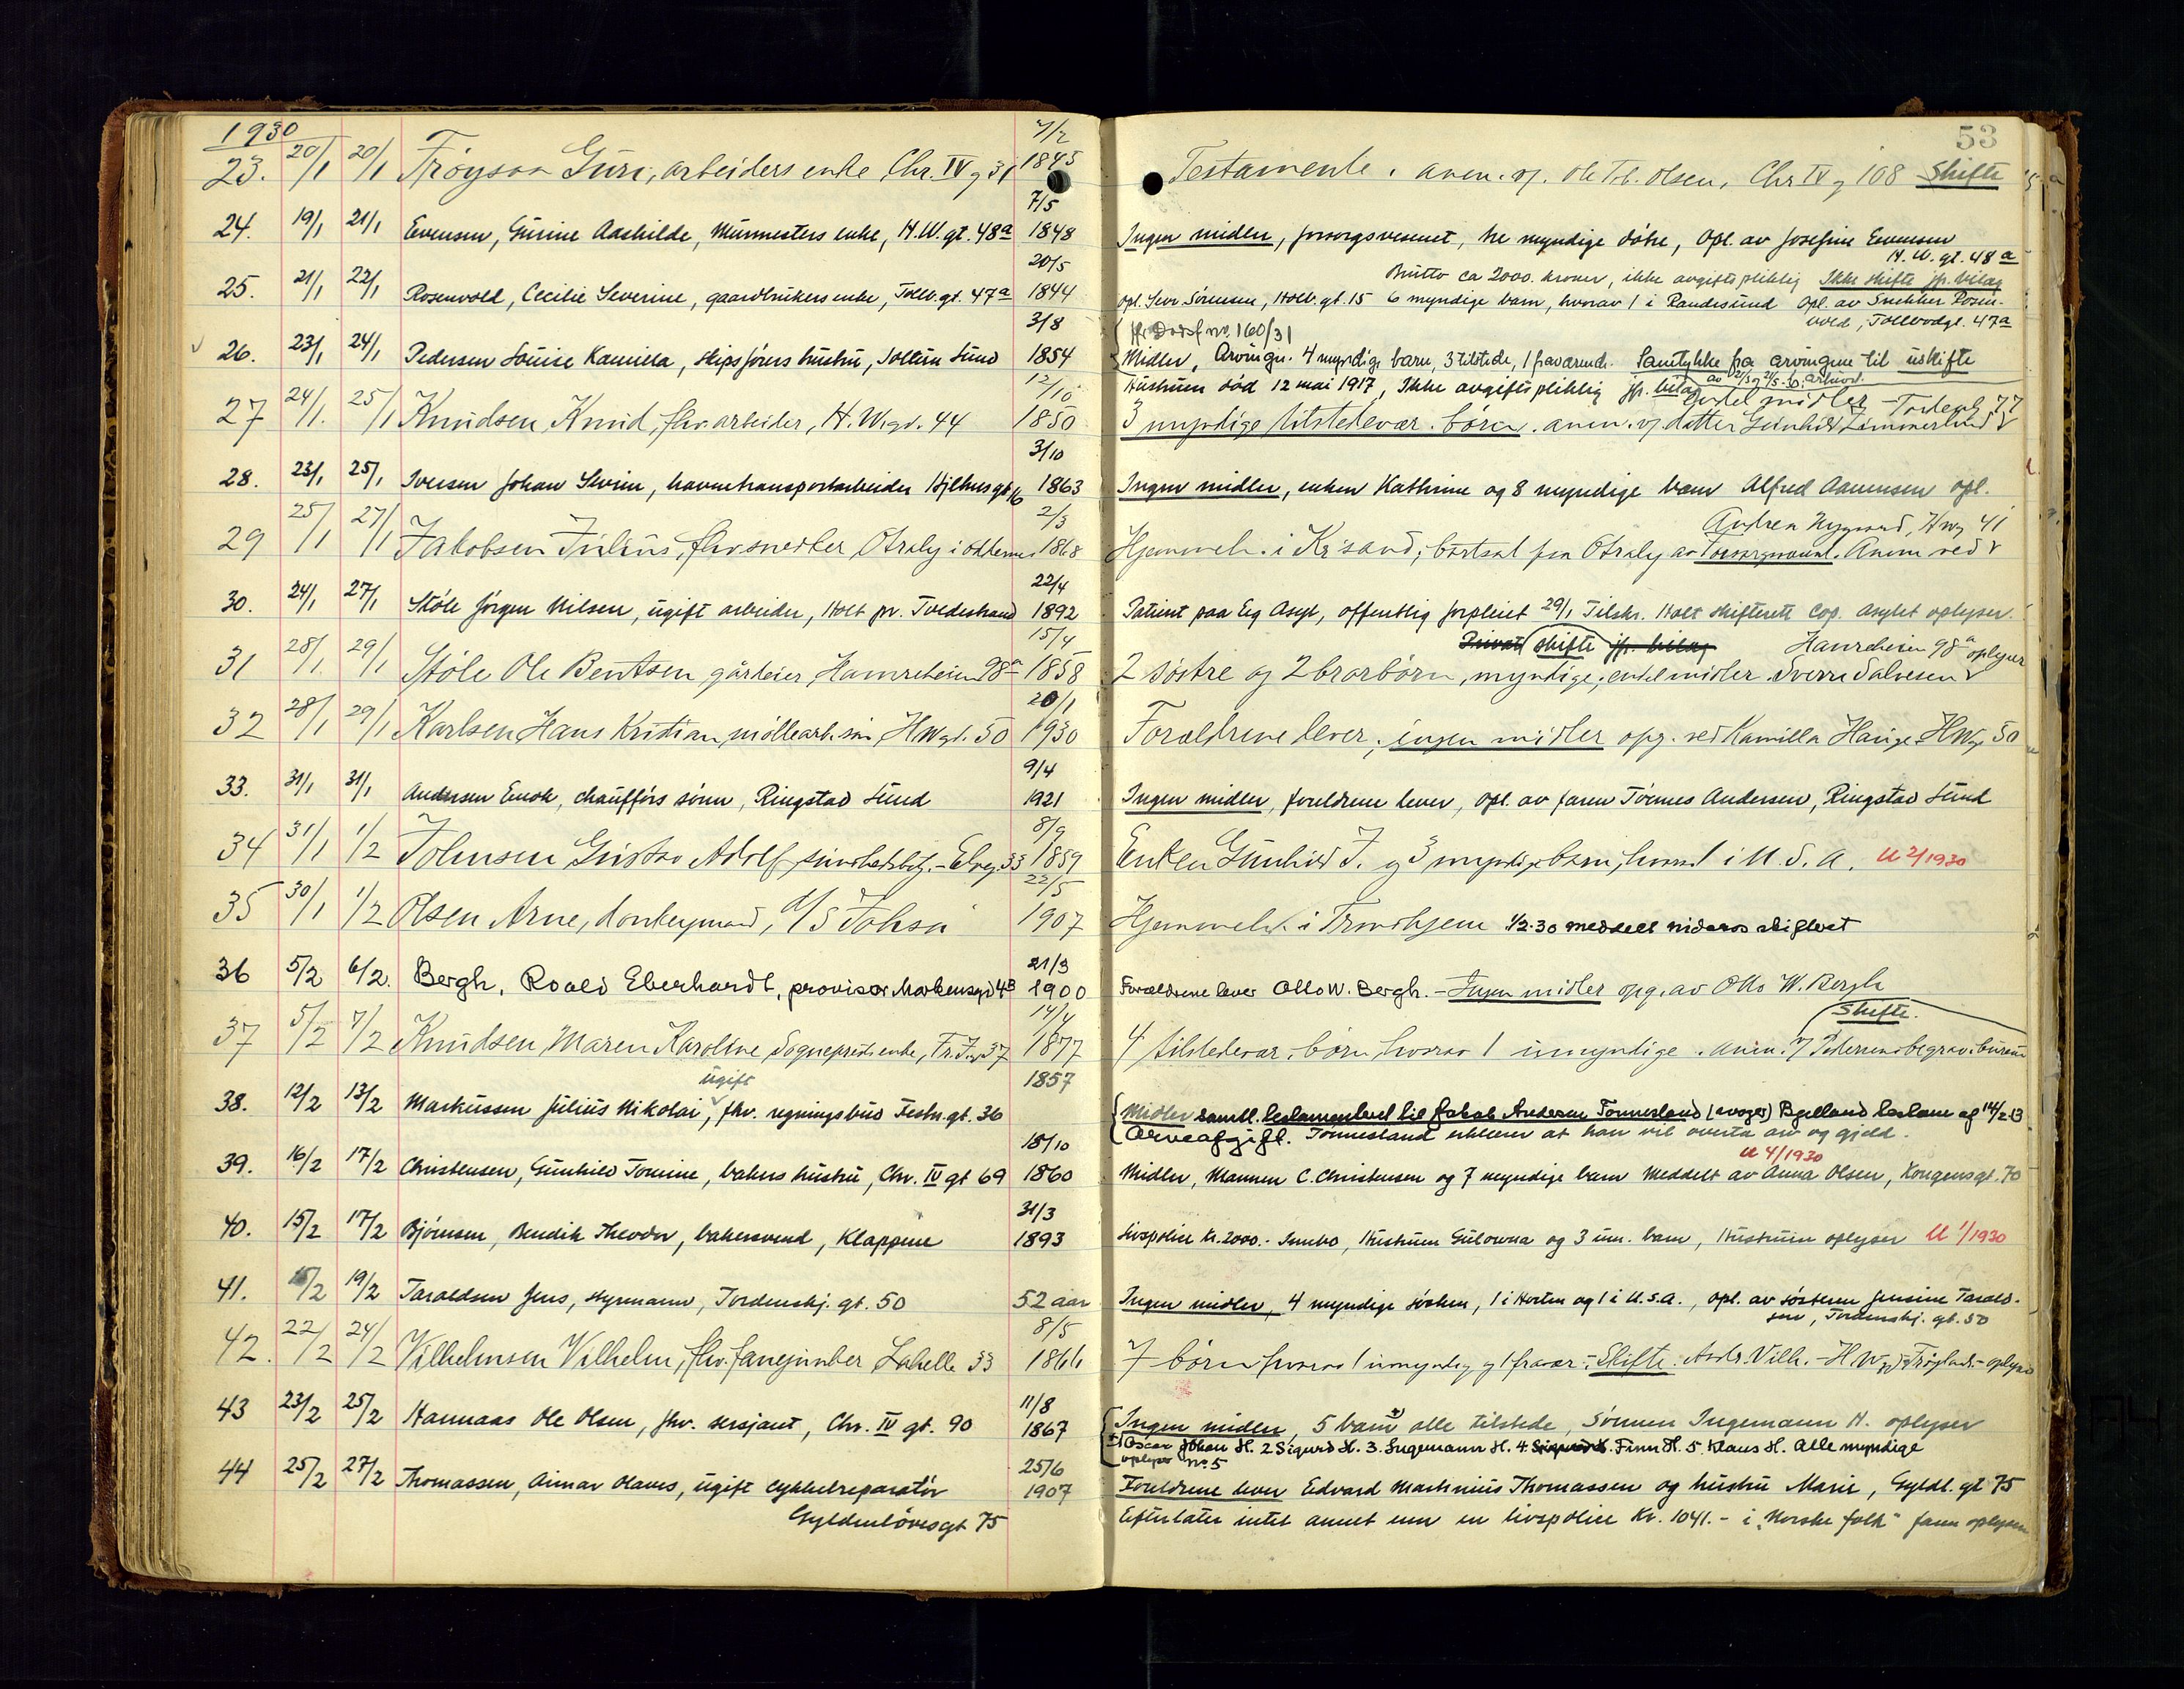 1930
53
23. 20/1 20/1 Frøysaa Guri, arbeiders enke Chr. IV g 31 7/2 1845 Testamente. anm. v. Ole Tb. Olsen, Chr IV g 108 Skifte
24. 19/1 21/1 Evensen, Gurine Aashilde, Murmesters enke, H.W. gt. 48a 7/5 1848 Ingen midler, forsorgsvesenet, tre myndige døtre, Opl. av Josefine Evensen
H.W. gt. 48a
Brutto ca 2000. kroner, ikke avgiftspliktig Ikke skifte jfr. bilag
25. 21/1 22/1 Rosenvold, Cecilie Severine, gaardbrukers enke, Tollb. gt. 47a 20/5 1844 opl. Sevr. Sørensen, Holb. gt. 15 6 myndige barn, hvorav 1 i Randesund Opl. av Snekker Rosen-
vold, Tollbodgt. 47a
jfr Dødsf no. 160/31
26. 23/1 24/1 Pedersen Louise Kamilla, skipsførers hustru, Soltun Lund 3/8 1854 Midler, Arvinger. 4 myndige barn, 3 tilstede, 1 fraværende. Samtykke fra arvingene til uskifte
Hustruen død 12 mai 1917, Ikke avgiftspliktig jfr. bilag
27 24/1 25/1 Knudsen, Knud, fhv. arbeider, H.W. gt. 44 12/10 1850 3 myndige tilstedevær. børn. anm. v/ datter Gunhild Timmerlund
endel midler
28. 23/1 25/1 Iversen Johan Severin, havnetransportarbeider Kjelhus gt. 16 3/10 1863 Ingen midler, enken Kathrine og 8 myndige barn Alfred Aanensen opl.
Andrea Nygaard, Hwg 41
29 25/1 27/1 Jakobsen Julius, fhv. snedker, Otraly i Oddernes 2/3 1868 Hjemmeh. i Kr.sand; bortsat paa Otraly av Forsorgsvesenet. Anm ved
30. 24/1 27/1 Støle Jørgen Nilsen, ugift arbeider, Holt pr. Tvedestrand 22/4 1892 Patient paa Eg Asyl, offentlig forpleiet 29/1 Tilskr. Holt skifterett Cop. Asylet oplyser.
Privat skifte jfr. bilag Hamreheien 98a oplyser
31 28/1 29/1 Støle Ole Bentsen gårdeier, Hamreheien 98a 15/4 1858 2 søstre og 2 brorbørn, myndige, endel midler. Sverre Salvesen
32 28/1 29/1 Karlsen, Hans Kristian, møllearb. søn, H.W. gt. 50 20/1 1930 Forældrene lever, ingen midler opg. ved Kamilla Hauge HWg 50
33. 31/1 31/1 Andersen Enok, chaufførs sønn, Ringstad Lund 9/4 1921 Ingen midler, foreldrene lever, opl. av faren Tønnes Andersen, Ringstad Lund
34 31/1 1/2 Johnsen Gustav Adolf, Elveg. 33 8/9 1859 Enken Gunhild J. og 3 myndige barn, hvorav 1 i U.S.A. U 2/1930
35 30/1 1/2 Olsen Arne, donkeymand, D/S Tohsa 22/5 1907 Hjemmeh. i Trondhjem 1/2-30 meddelt nidaros skifteret
36 5/2 6/2. Bergh, Roald Eberhardt, provisor Markensgt 4B 21/3 1900 Forældrene lever Otto W. Bergh. - Ingen midler opg. av Otto W. Bergh
Skifte.
37 5/2 7/2 Knudsen, Maren Karoline, Sogneprests enke, Fr. F. g 37 14/4 1877 4 tilstedevær. børn hvorav 1 umyndige. anm. v/ Pedersens begrav. bureau
ugift
38. 12/2 13/2 Markussen Julius Nikolai, fhv. regningsbud Festn. gt. 36 1857 Midler samtl. testamenteret til Jakob Andersen Tønnesland (avager) Bjelland testam af 14/2 13
Arveafgift. Tønnesland erklærer at han vil overta arv og gjeld.
U 4/1930
39. 16/2 17/2 Christensen, Gunhild Tomine, bakers hustru, Chr. IV gt 69 18/10 1860 Midler, Mannen C. Christensen og 7 myndige barn Meddelt av Anna Olsen, Kongensgt. 70
40. 15/2 17/2 Bjørnsen, Bendik Theodor, bakersvend, Klappene 31/3 1893 Livspolice kr. 2000.- Innbo, Hustruen Gulowna og 3 um. barn, Hustruen oplyser U 1/1930
41. 15/2 19/2 Taraldsen Jens, styrmann, Tordenskj. gt. 50 52 aar Ingen midler, 4 myndige søsken, 1 i Horten og 1 i U.S.A., opl. av søsteren Jensine Tarald-
sen, Tordenskj. gt. 50
42. 22/2 24/2 Vilhelmsen Vilhelm, fhv. fanejunker Lahelle 33 8/5 1866 7 børn hvorav 1 umyndig og 1 fravær. - Skifte. Andr. Vilh. - oplyser
43 23/2 25/2 Hannaas Ole Olsen, fhv. sersjant, Chr. IV gt. 90 11/8 1867 Ingen midler, 5 barn alle tilstede, Sønnen Ingemann H. oplyser
1 Oscar Johan H. 2 Sigurd H. 3. Ingemann H. 4. Finn H. 5. Klaus H. Alle myndige
oplyser No. 5
44 25/2 27/2 Thomassen, Aimar Olaves, ugift cykkelreparatør 25/6 1907 Foreldrene lever Edvard Martinius Thomassen og hustru Marie, Gyldl. gt 75
Gyldenløvesgt 75 Efterlater intet annet enn en livspolice Kr. 1041.- i "Norske folk" faren oplyser